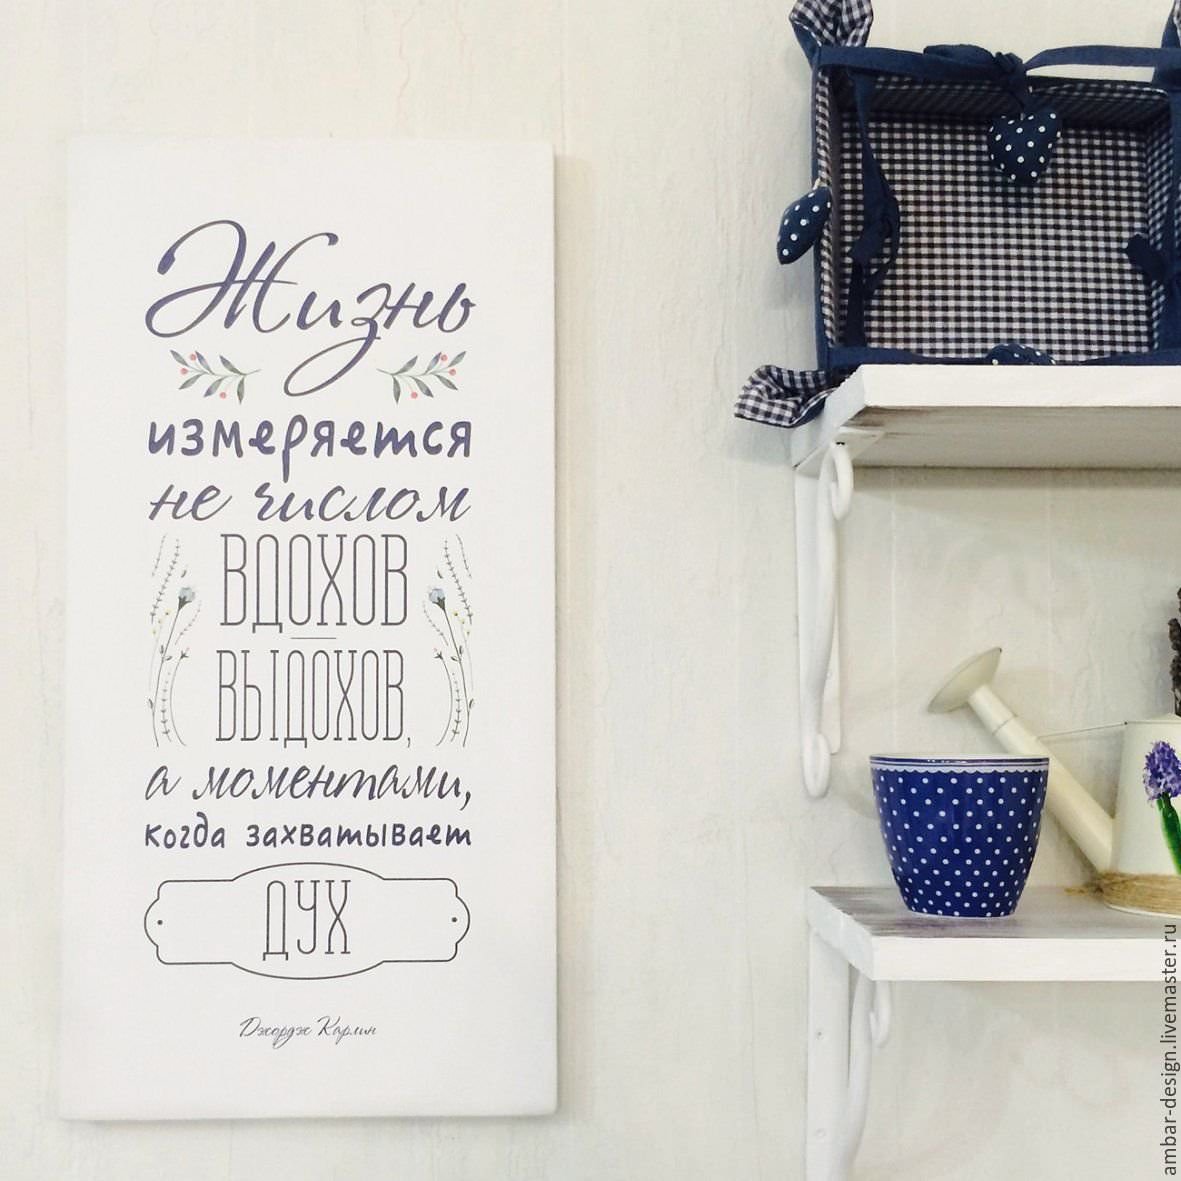 Жизнь
измеряется
не числом
ВДОХОВ
ВЫДОХОВ,
а моментами,
когда захватывает
ДУХ
Джордж Карлин
ambar-design.livemaster.ru